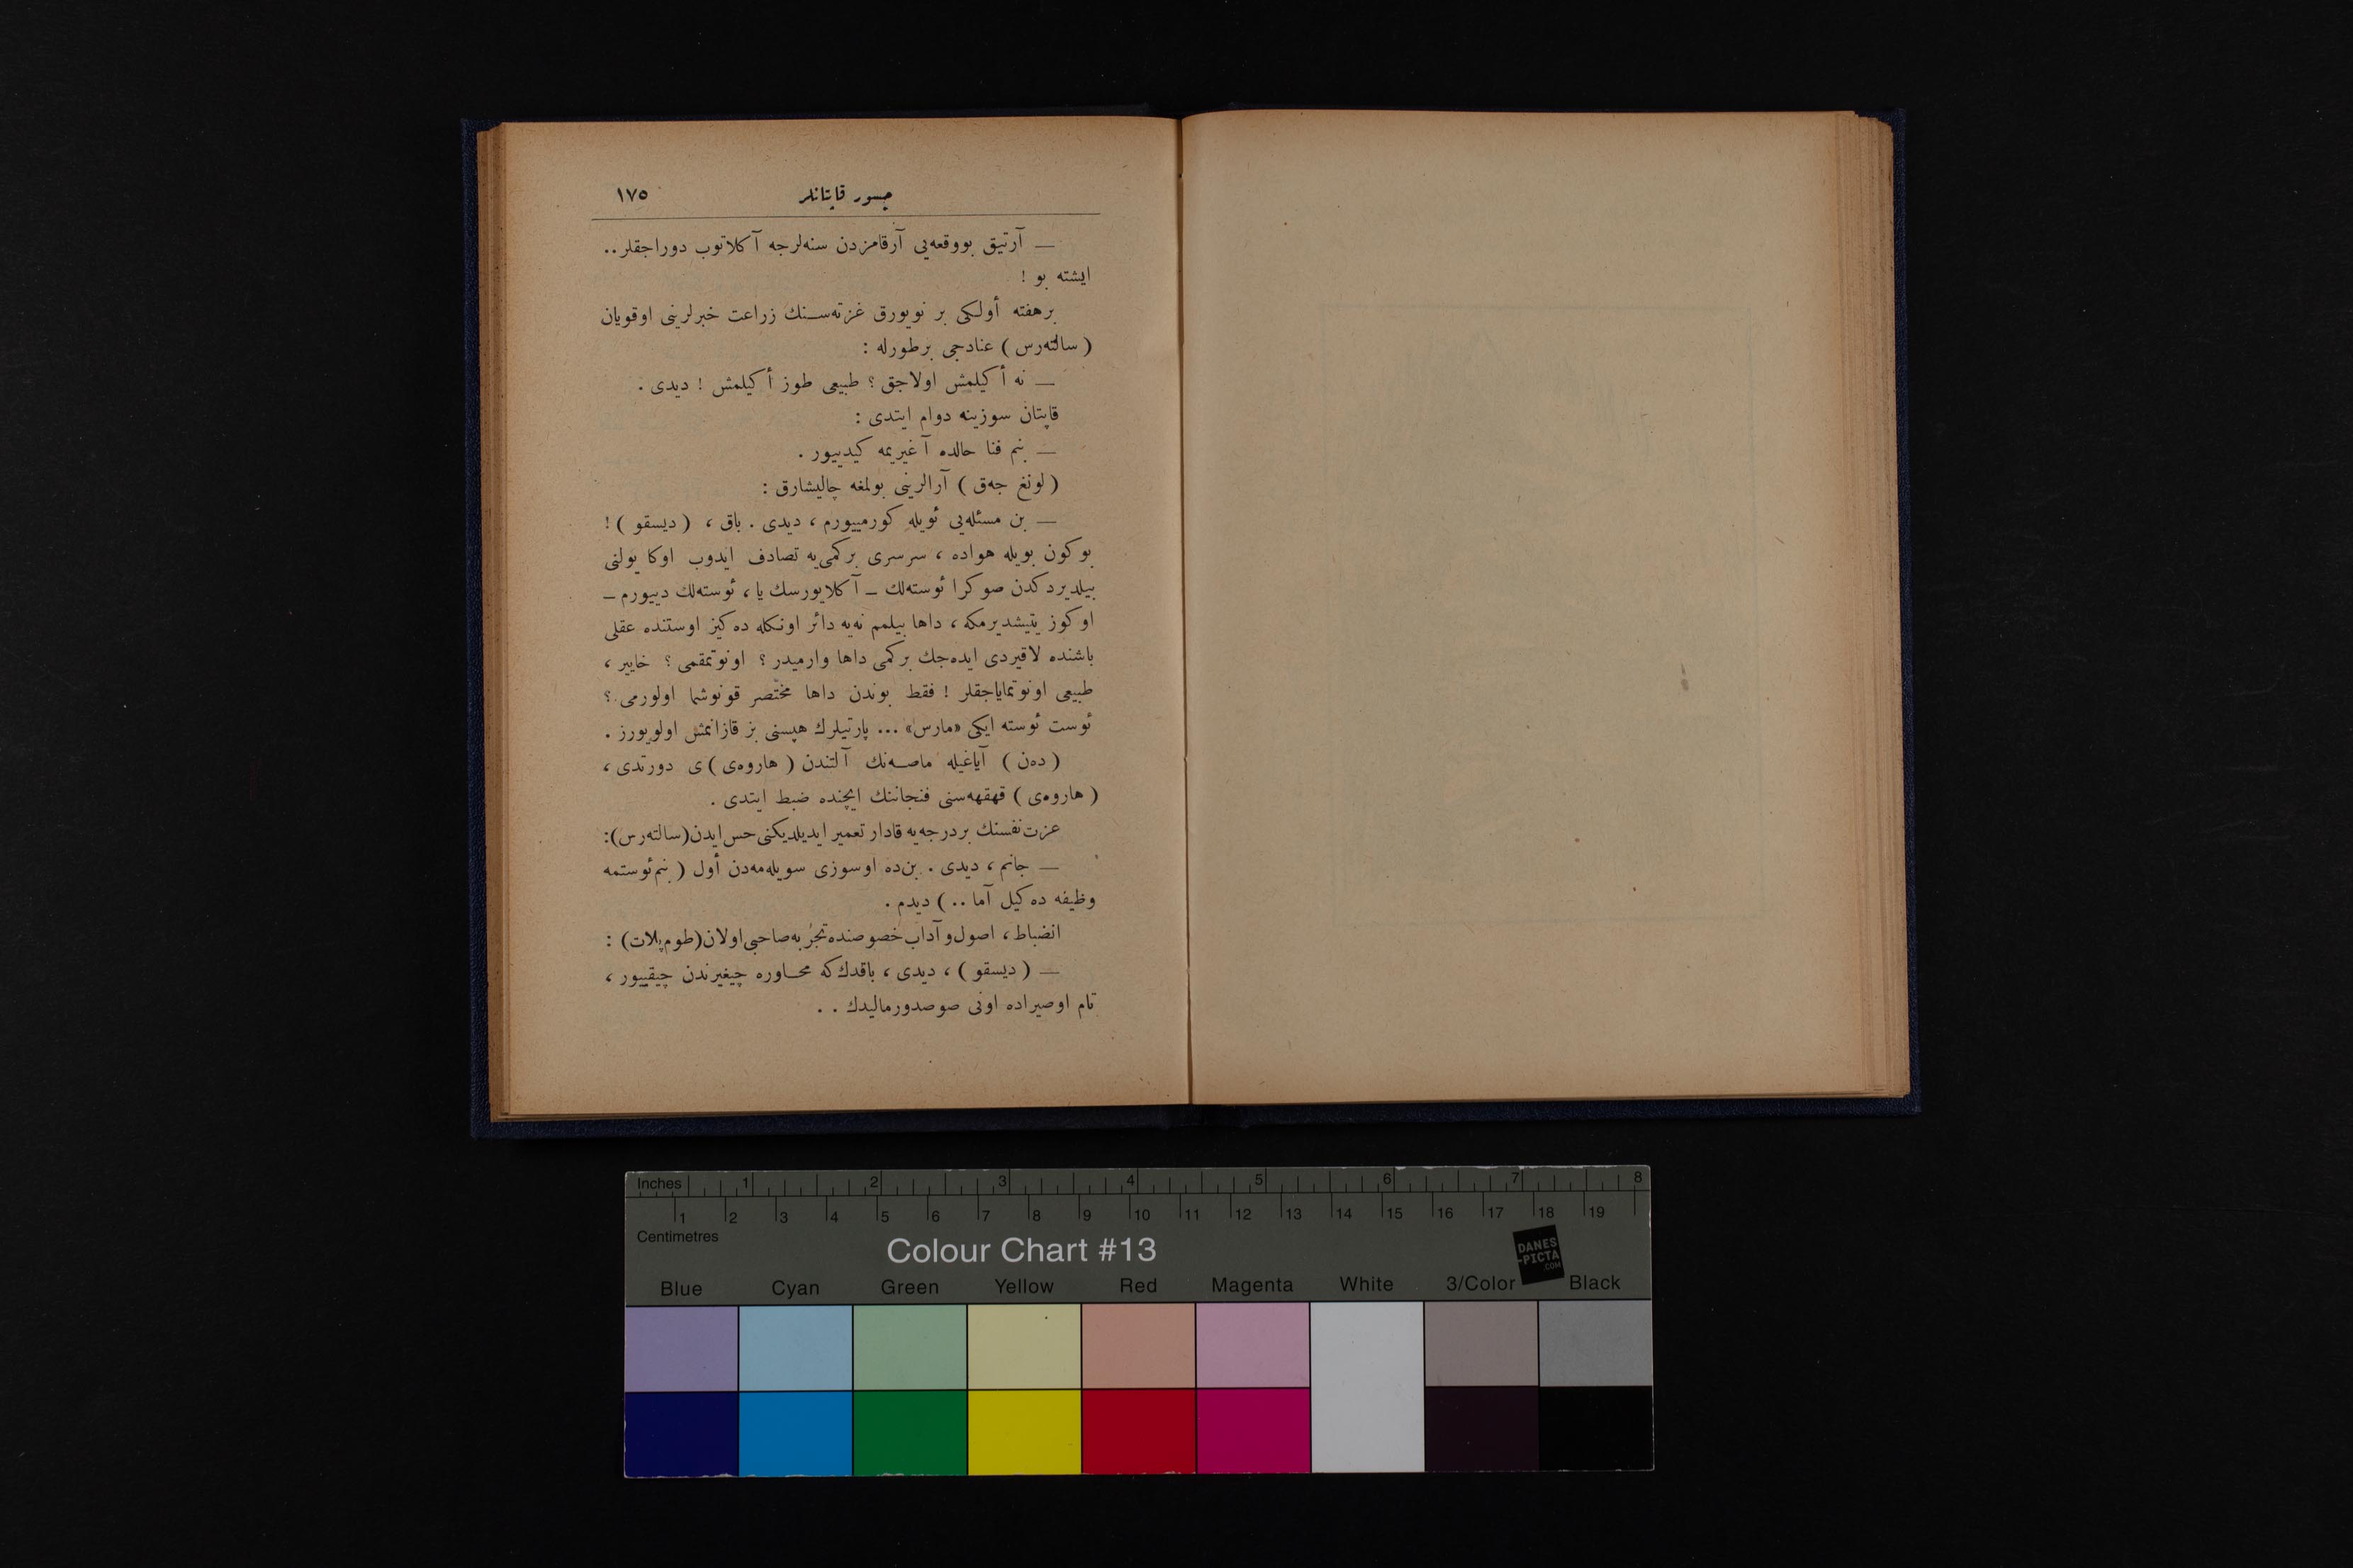 جسور قاپتانلر ١٧٥
— آرتیق بووقعه‌یی آرقامزدن سنه‌لرجه آكلاتوب دوراجقلر..
ایشته بو !
برهفته أولكی بر نویورق غزته‌سنك زراعت خبرلرینی اوقویان
( سالته‌رس ) عنادجی برطورله :
— نه أكیلمش اولاجق ؟ طبیعی طوز أكیلمش ! دیدی .
قاپتان سوزینه دوام ایتدی :
— بنم فنا حالده آغیریمه كیدییور .
( لونغ جه‌ق ) آرالرینی بولمغه چالیشارق :
— بن مسئله‌یی ئویله كورمییورم ، دیدی . باق ، ( دیسقو ) !
بوكون بویله هواده ، سرسری بركمی‌یه تصادف ایدوب اوكا یولنی
بیلدیردكدن صوكرا ئوسته‌لك – آكلایورسك یا ، ئوسته‌لك دییورم –
اوكوز یتیشدیرمكه ، داها بیلمم نه‌یه دائر اونكله ده‌كیز اوستنده عقلی
باشنده لاقیردی ایده‌جك بركمی داها وارمیدر ؟ اونوتمقمی ؟ خاییر ،
طبیعی اونوتمایاجقلر ! فقط بوندن داها مختصر قونوشما اولورمی ؟
ئوست ئوسته ایكی «مارس» ... پارتیلرك هپسنی بز قازانمش اولویورز .
( ده‌ن ) آیاغیله ماصه‌نك آلتندن ( هاروه‌ی ) ی دورتدی ،
( هاروه‌ی ) قهقهه‌سنی فنجاننك ایچنده ضبط ایتدی .
عزت‌نفسنك بردرجه‌یه قادار تعمیر ایدیلدیكنی حس ایدن(سالته‌رس):
— جانم ، دیدی . بن‌ده اوسوزی سویله‌مه‌دن أول ( بنم‌ئوستمه
وظیفه ده‌كیل آما .. ) دیدم .
انضباط ، اصول و آداب خصوصنده تجربه صاحبی اولان(طوم‌پلات) :
— ( دیسقو ) ، دیدی ، باقدك‌كه محاوره چیغیرندن چیقییور ،
تام اوصیراده اونی صوصدورمالیدك . .
Inches 1 2 3 4 5 6 7 8
1 2 3 4 5 6 7 8 9 10 11 12 13 14 15 16 17 18 19
Centimetres
Colour Chart #13
DANES
-PICTA
.COM
Blue Cyan Green Yellow Red Magenta White 3/Color Black